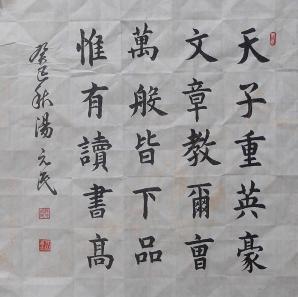 天子重英豪
文章教爾曺
萬般皆下品
惟有讀書高
癸巳秋湯元民